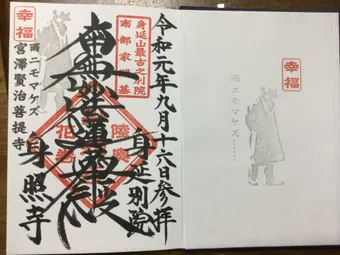 令和元年九月十六日参拝
身延別院
身延山最古之別院
南部家開基
南無妙法蓮華経
幸福
雨ニモマケズ
宮澤賢治菩提寺
身照寺
幸福
雨ニモマケズ……